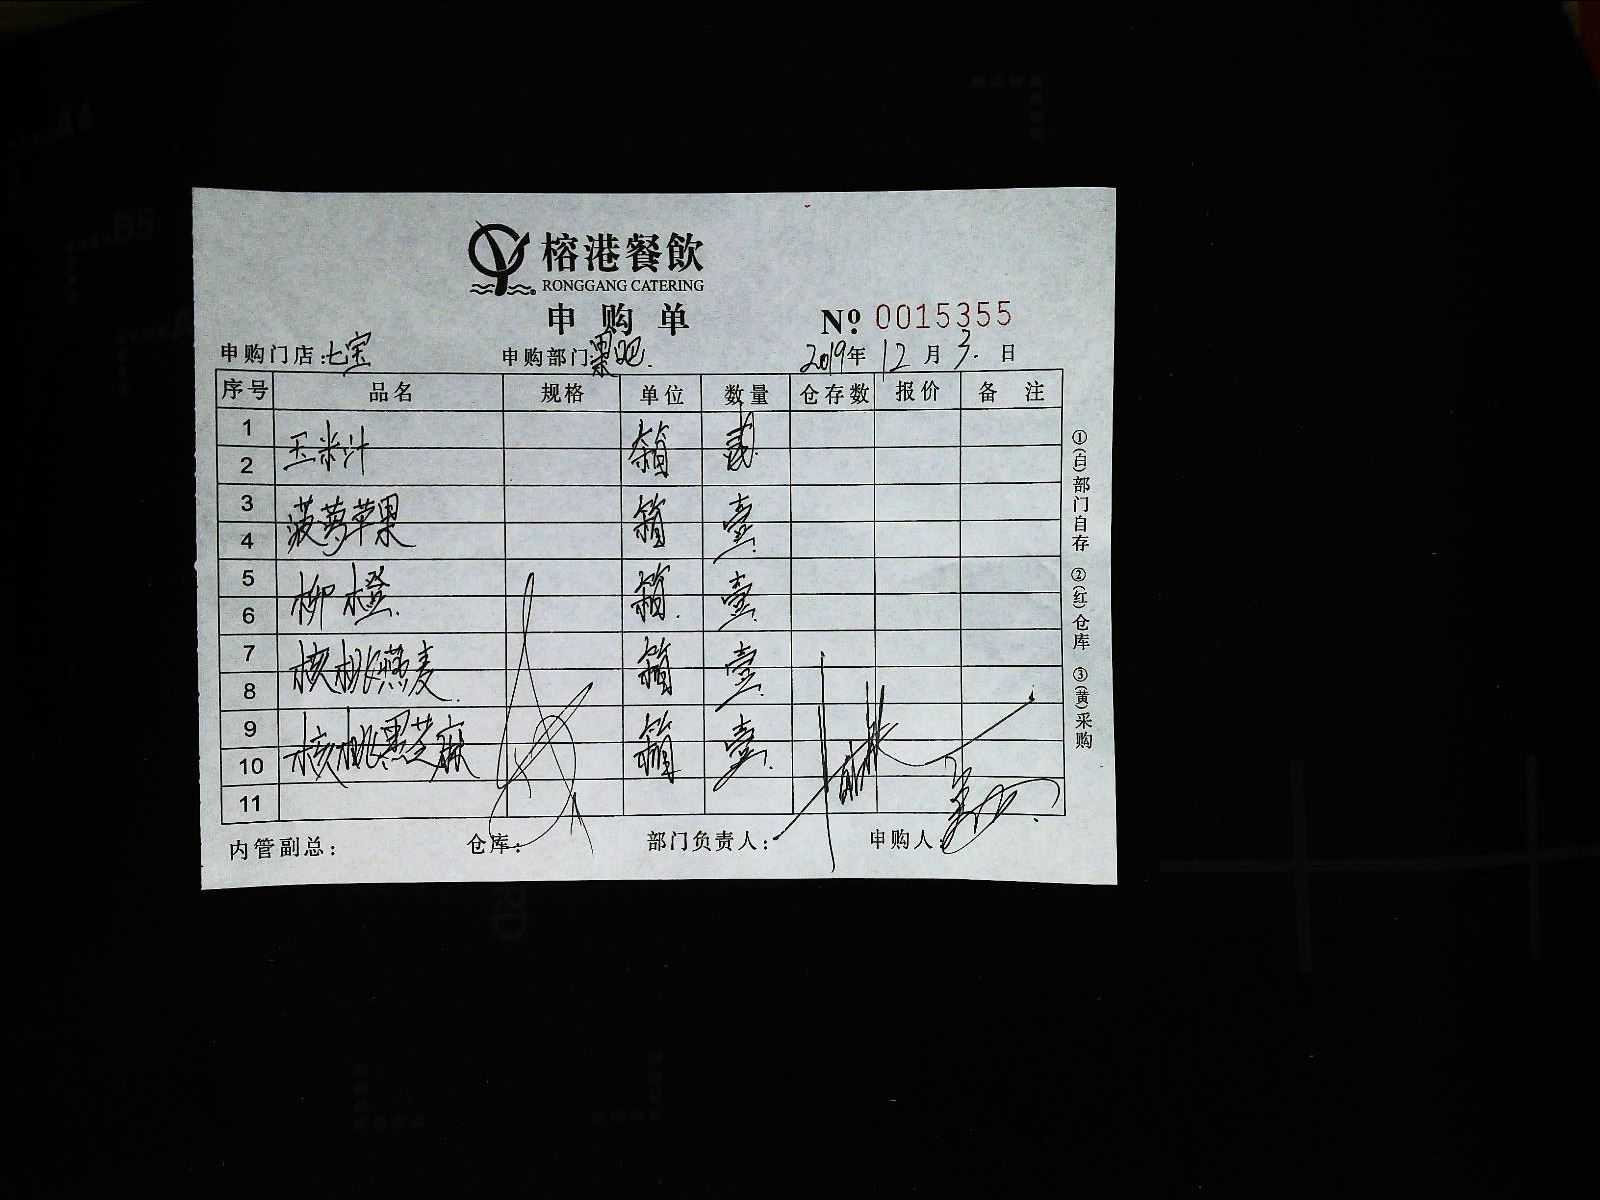 榕港餐飲
RONGGANG CATERING
申购单
№ 0015355
申购门店:七宝 申购部门:票吧. 2019年12月3.日
序号 品名 规格 单位 数量 仓存数 报价 备 注
1
玉米汁 箱 贰
2
3
菠萝苹果 箱 壹
4
5
柳橙. 箱. 壹
6
7
核桃燕麦. 箱 壹
8
9
核桃黑芝麻 箱 壹
10
11
内管副总: 仓库: 部门负责人: 申购人:
①(白)部门自存 ②(红)仓库 ③(黄)采购